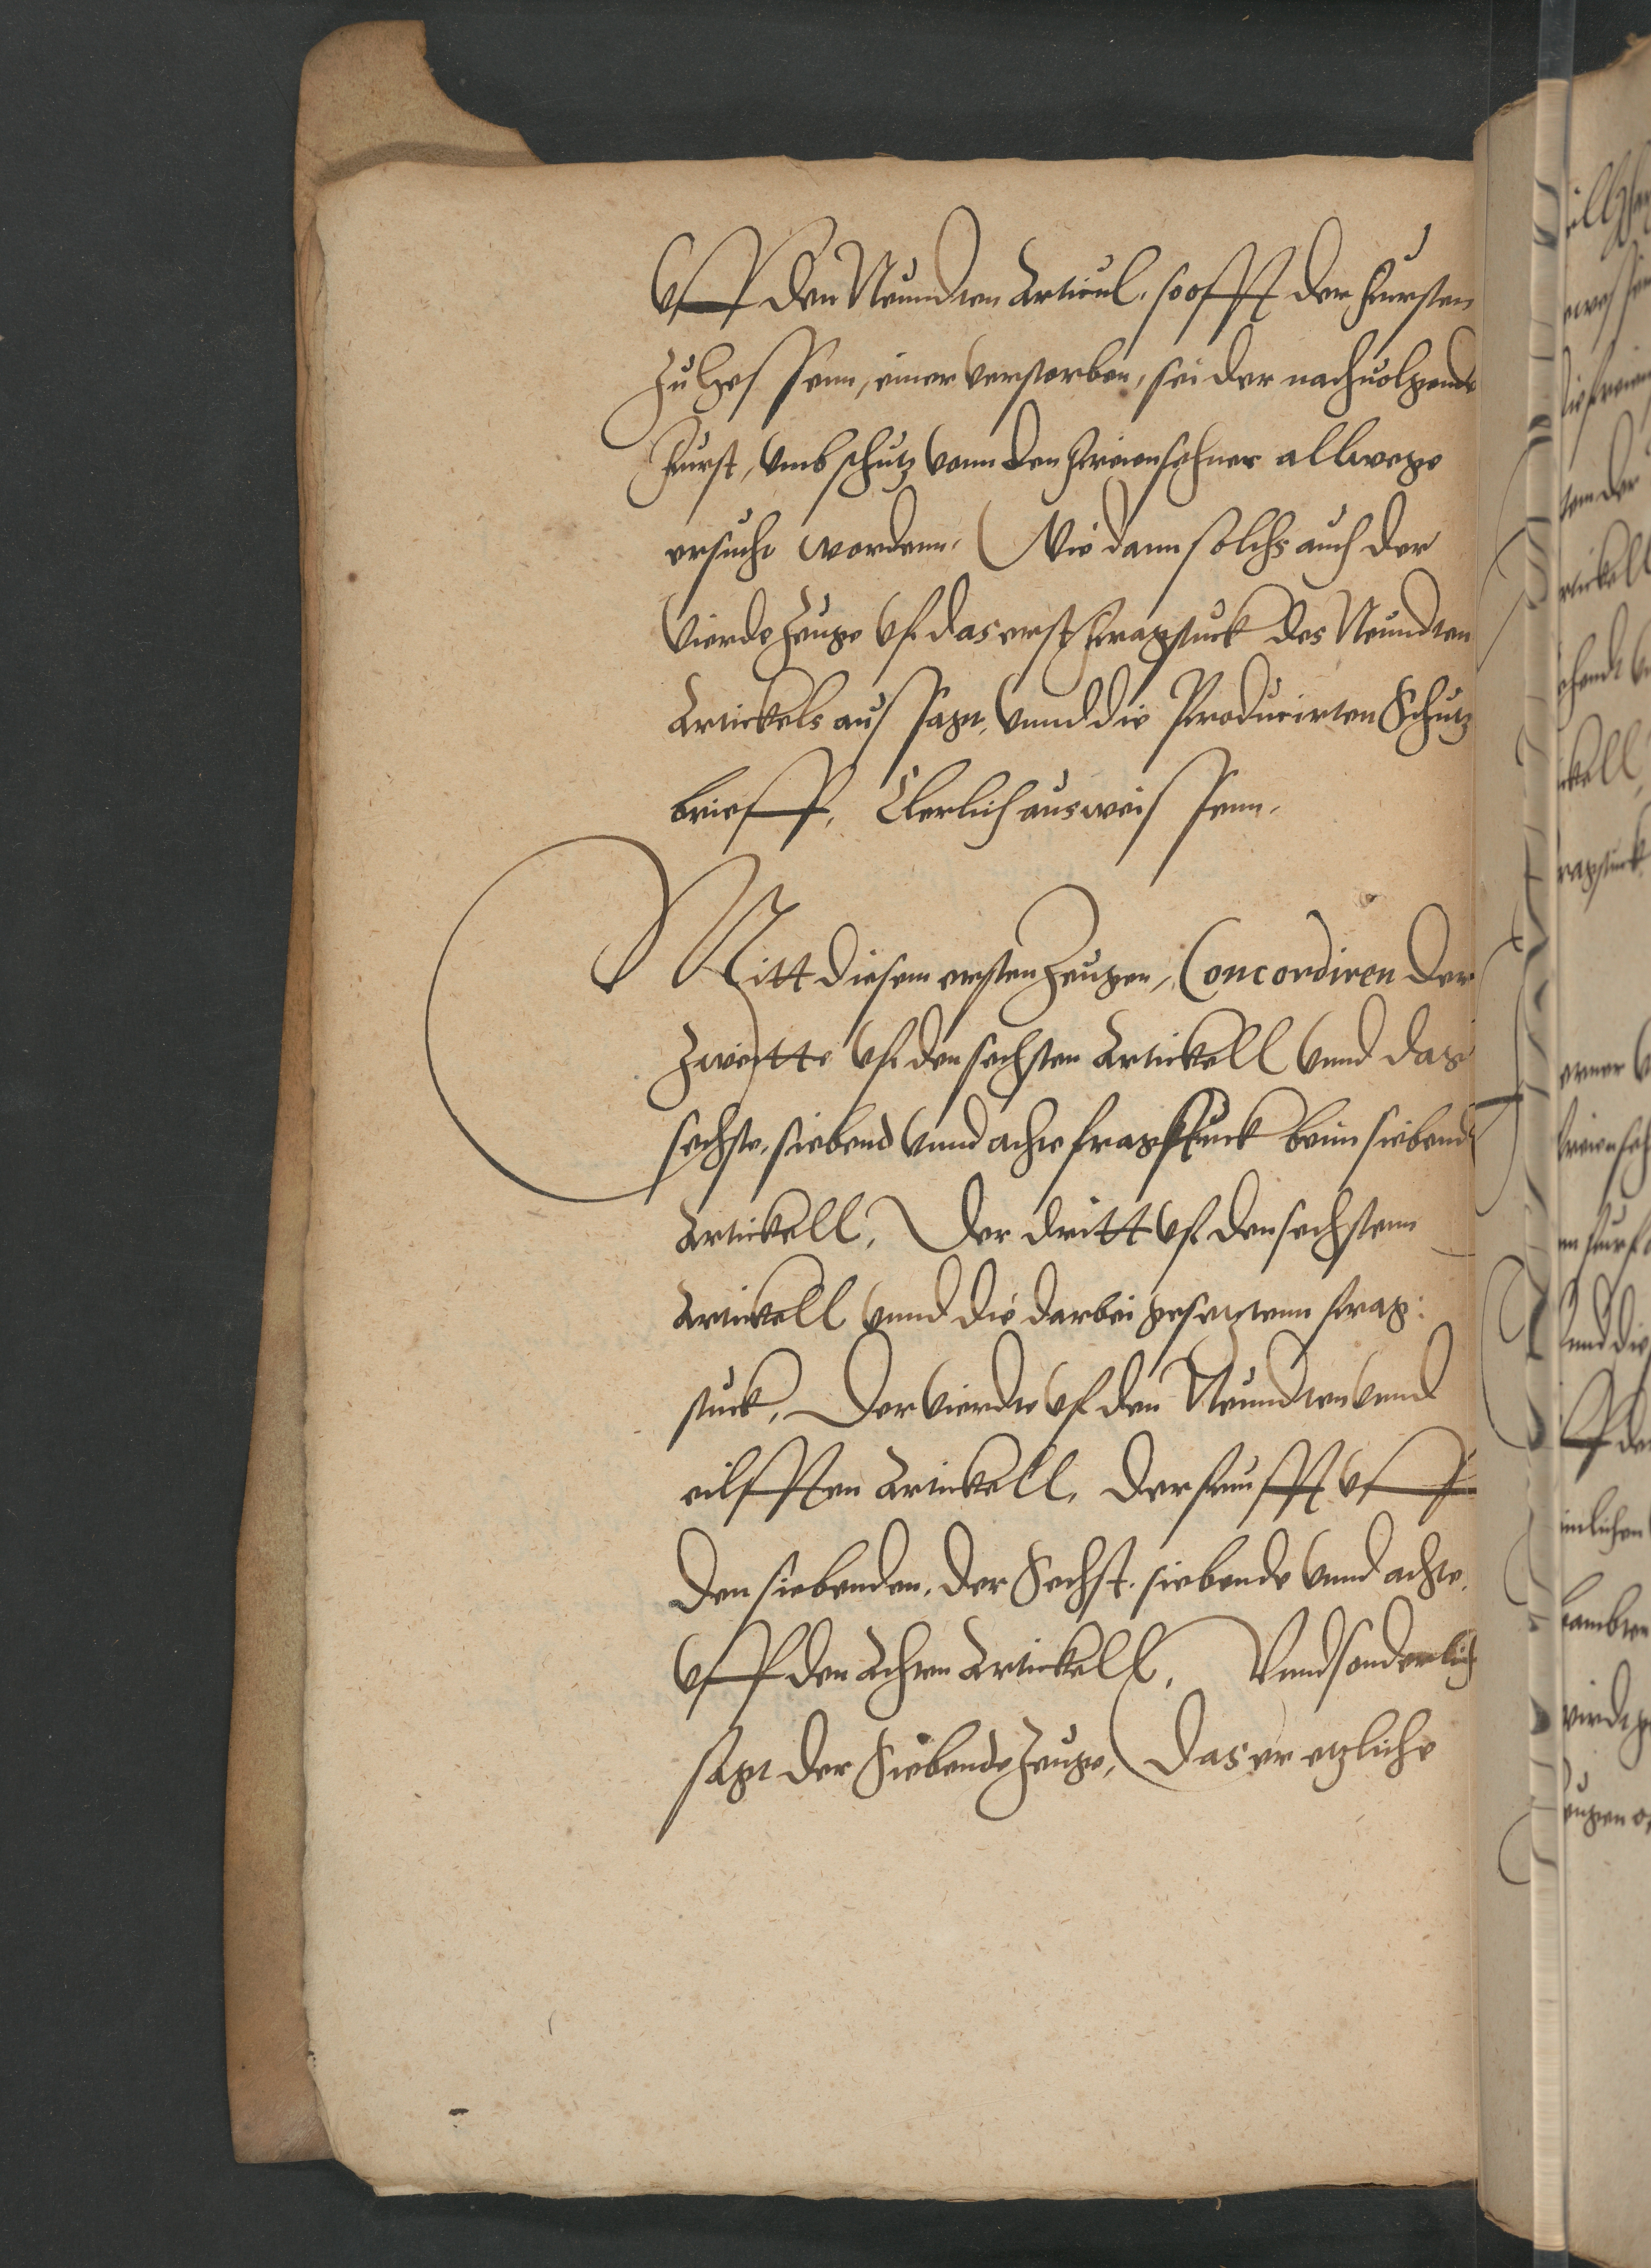 Uff den Neundten Articul, so offt der Fursten
zu Hessenn, einer verstorben, sei der nachuolgende
Furst, umb schutz vonn den Freiensehner allwege
ersucht wordenn. Wie dann solchs auch der
Vierde Zeuge uf das erst Fragstuck des Neundten
Artickels aussagt, unnd die Producirten Schutz
brieff, Clerlich ausweissenn.
Mitt diesem ersten Zeugen, Concordiren der
Zweitte uf den sechsten Artickell unnd das
sechste, siebend unnd achte fragstuck beim siebend
Artickell, Der dritt uf den sechstenn
Artickell unnd die darbei gesetztenn frag:
stuck, Der vierdte uf den Neundten unnd
eilfften Artickell, der funfft uff
den siebenden, der Sechst, siebende unnd achte,
uff den Achten Artickell, Unnd sonderlich
sagt der Siebende Zeuge, Das er etzliche